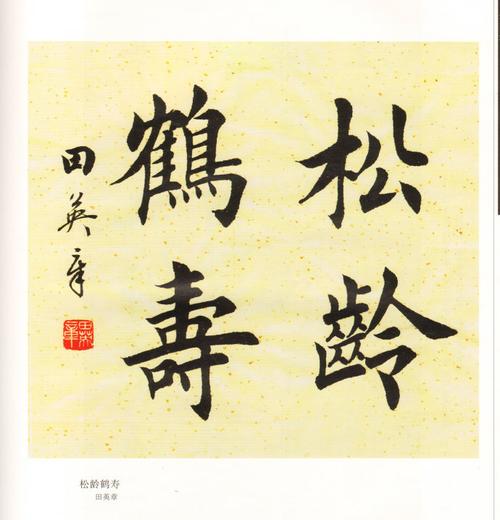 松齡
鶴壽
田英章
松龄鹤寿
田英章